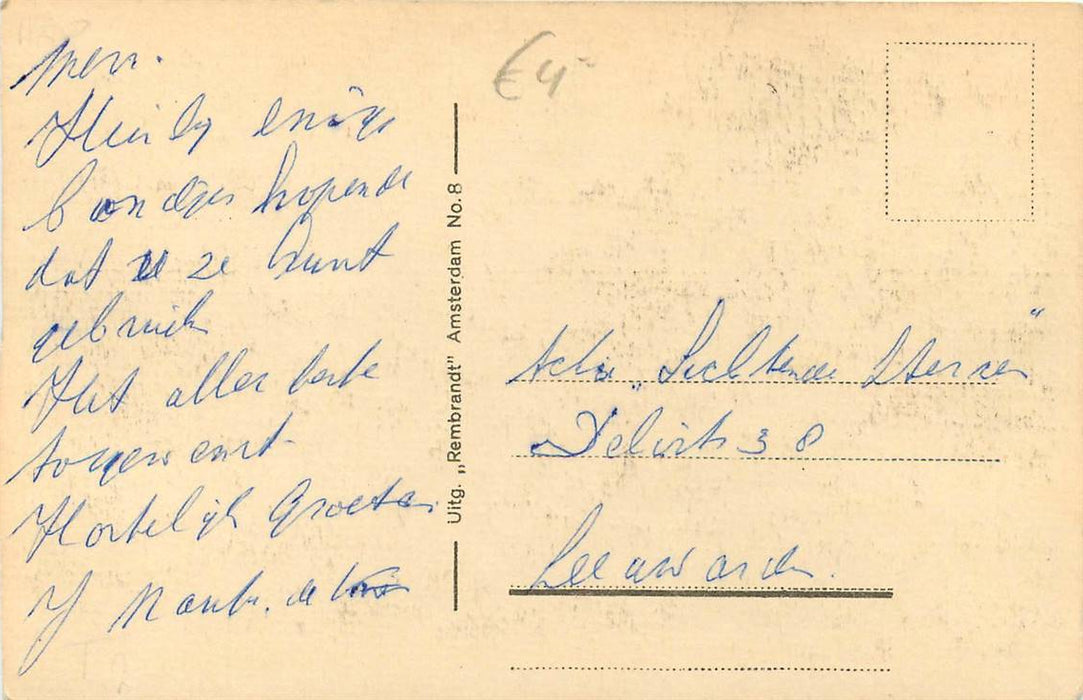 Men.
Hierbij enige
bandjes hopende
dat u ze kunt
gebruik
Het aller beste
toegewenst
Hortelijk Groeten
J de
€4-
Uitg. „Rembrandt” Amsterdam No. 8
Actie „Lichtende Sterren”
38
Leeuwarden.